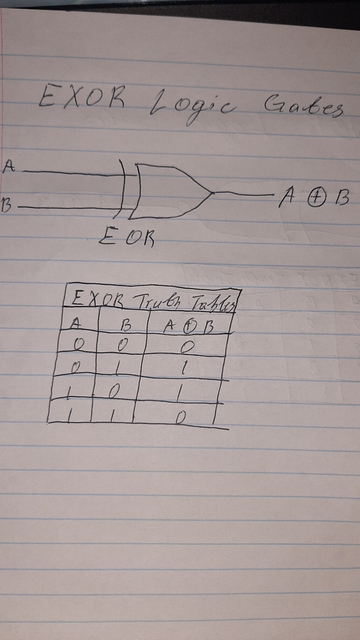 EXOR Logic Gates
A
B
A ⊕ B
EOR
EXOR Truth Tables
A B A ⊕ B
0 0 0
0 1 1
1 0 1
1 1 0